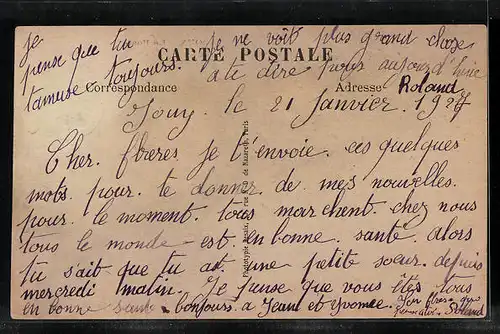 je
pense que tu
t'amuse toujours.
je ne voit plus grand chose
a te dire pour aujourd'huie
CARTE POSTALE
Correspondance
Adresse
Roland
Jouy. le 21 Janvier. 1927
Cher. frères je t'envoie. ces quelques
mots. pour. te donner de mes nouvelles.
pour. le moment. tous marchent. chez nous
tous le monde est. en bonne. santé. alors
tu s'ait que tu as une petite soeur. depuis
mercredi matin. Je pense que vous êtes tous
en bonne santé. bonjours. a Jean et Yvonne. Ton frère qui
Roland
Phototypie rue de Nazareth, Paris